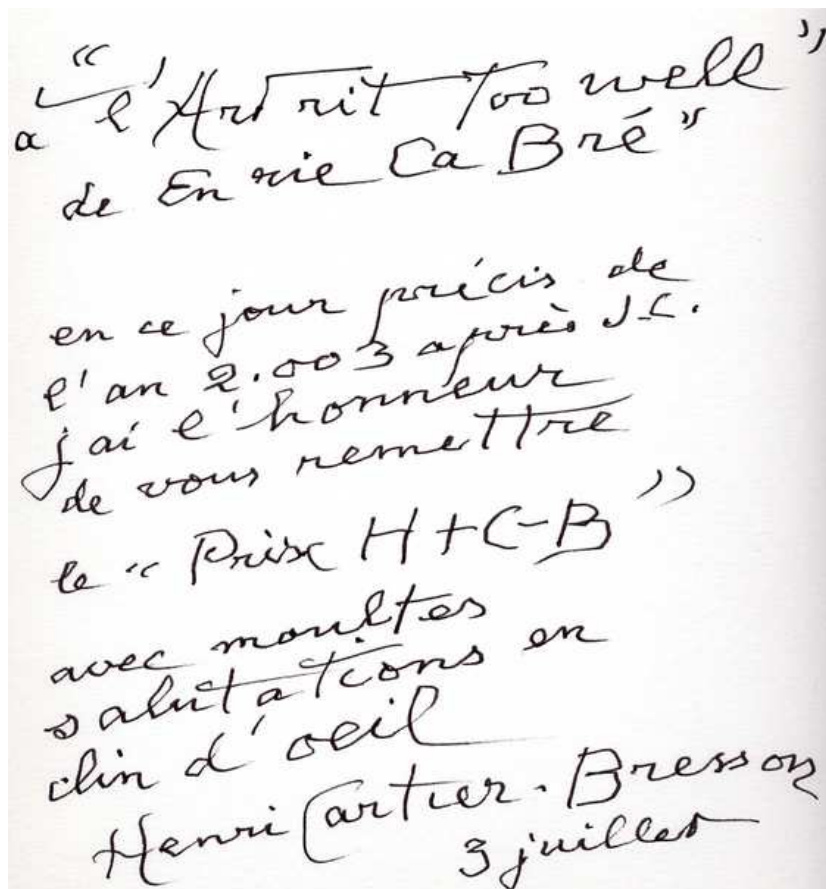 a "l'Art rit Too well"
de En rie Ca Bré"
en ce jour précis de
l'an 2.003 après J.C.
j'ai l'honneur
de vous remettre
le "Prix H+C-B"
avec moultes
salutations en
clin d'oeil
Henri Cartier-Bresson
3 juillet